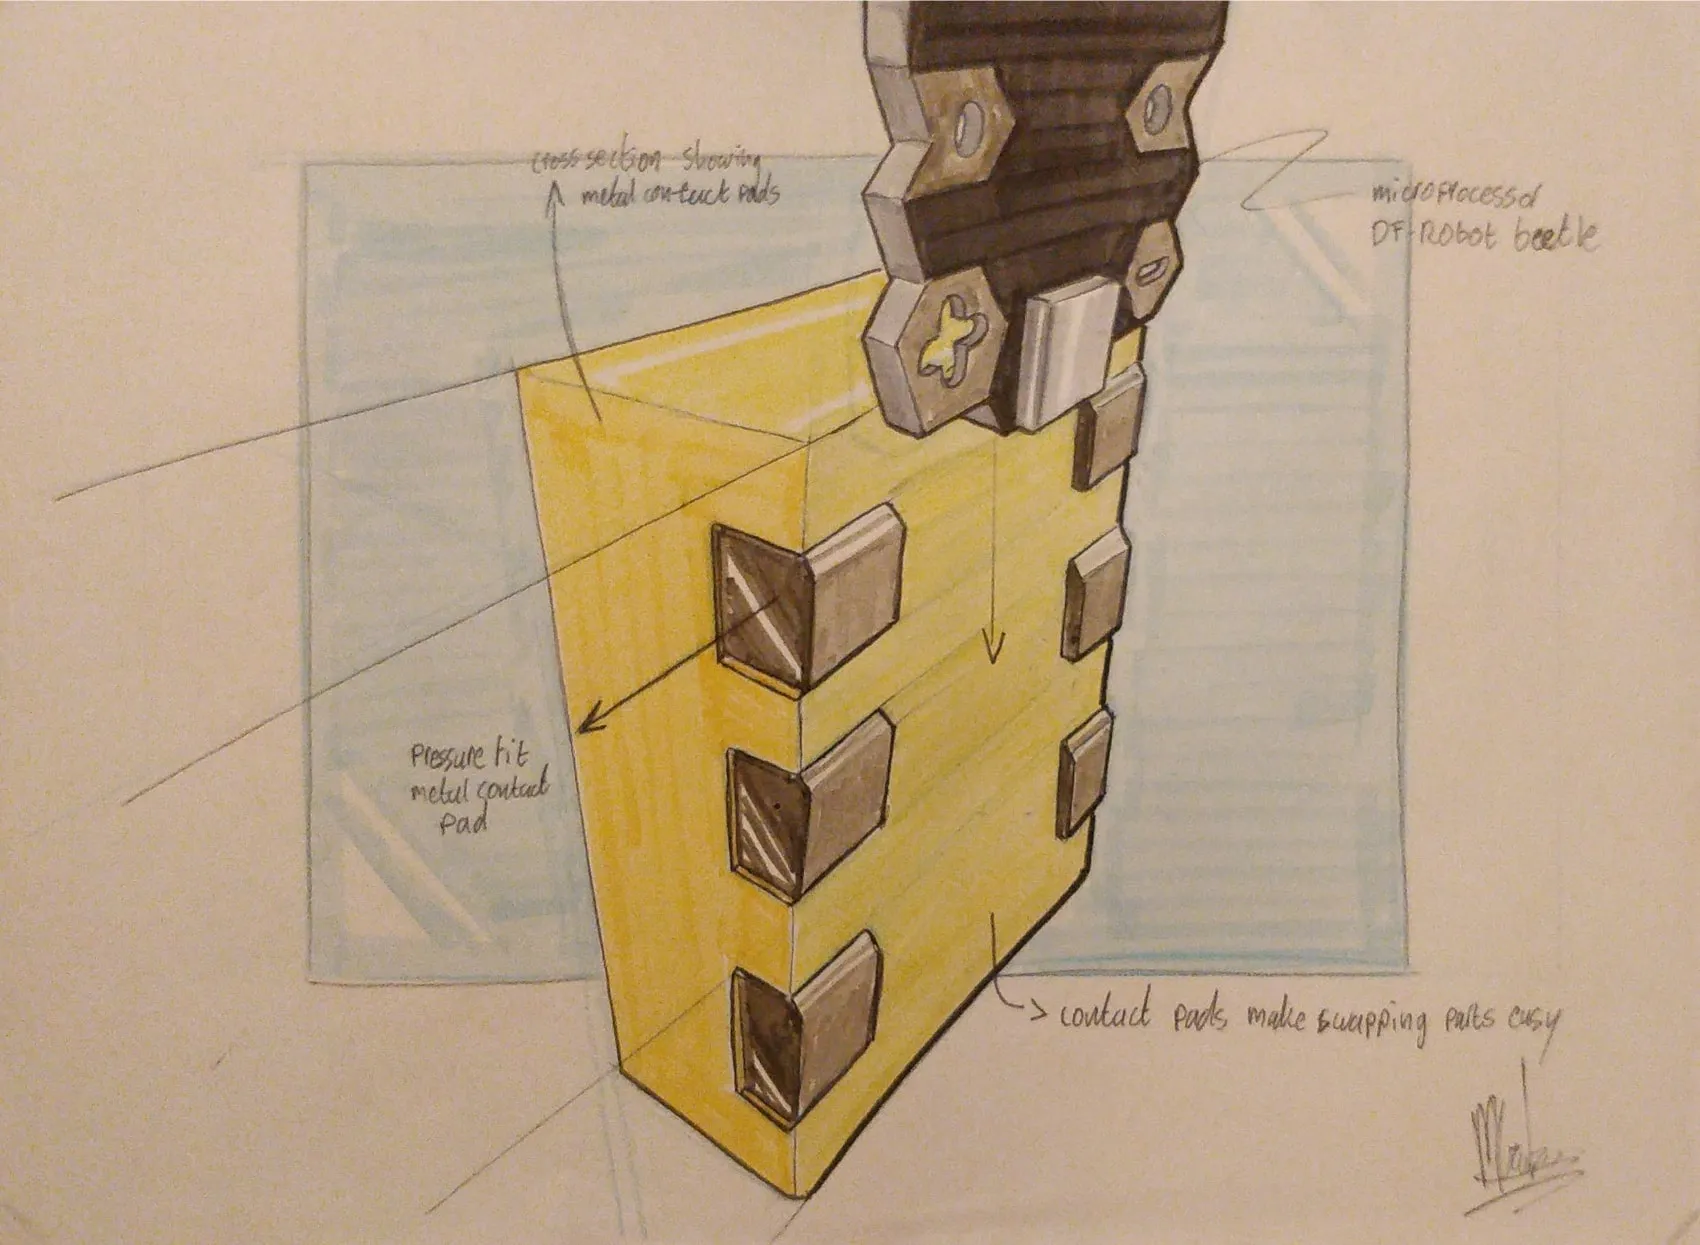 cross section showing
metal contact pads
microprocessor
DF-Robot beetle
Pressure fit
metal contact
pad
contact pads make swapping parts easy